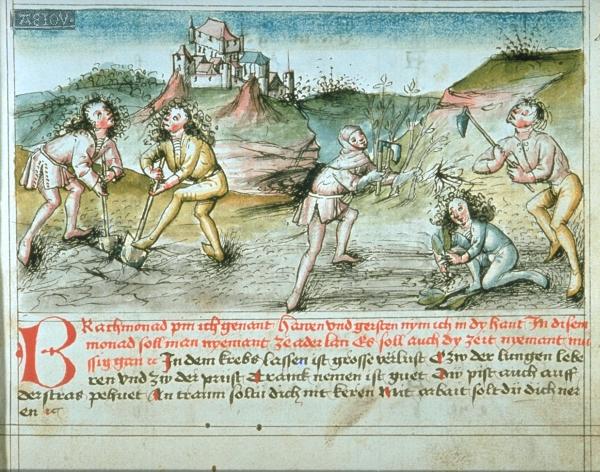 BRachmonad pin ich genant Harren vnd gersten nym ich in dy hant In disem
monad soll man nyemant ze ader lan Es soll auch dy zeit nyemant mus
sig gan ꝛc In dem krebs lassen ist grosse verlust Czw der lungen lebe
ren vnd zw der prust Tranck nemen ist guet Dw pist auch auff
der stras pehuet An traum soltu dich nit keren Mit arbait solt dw dich ner
en ꝛc